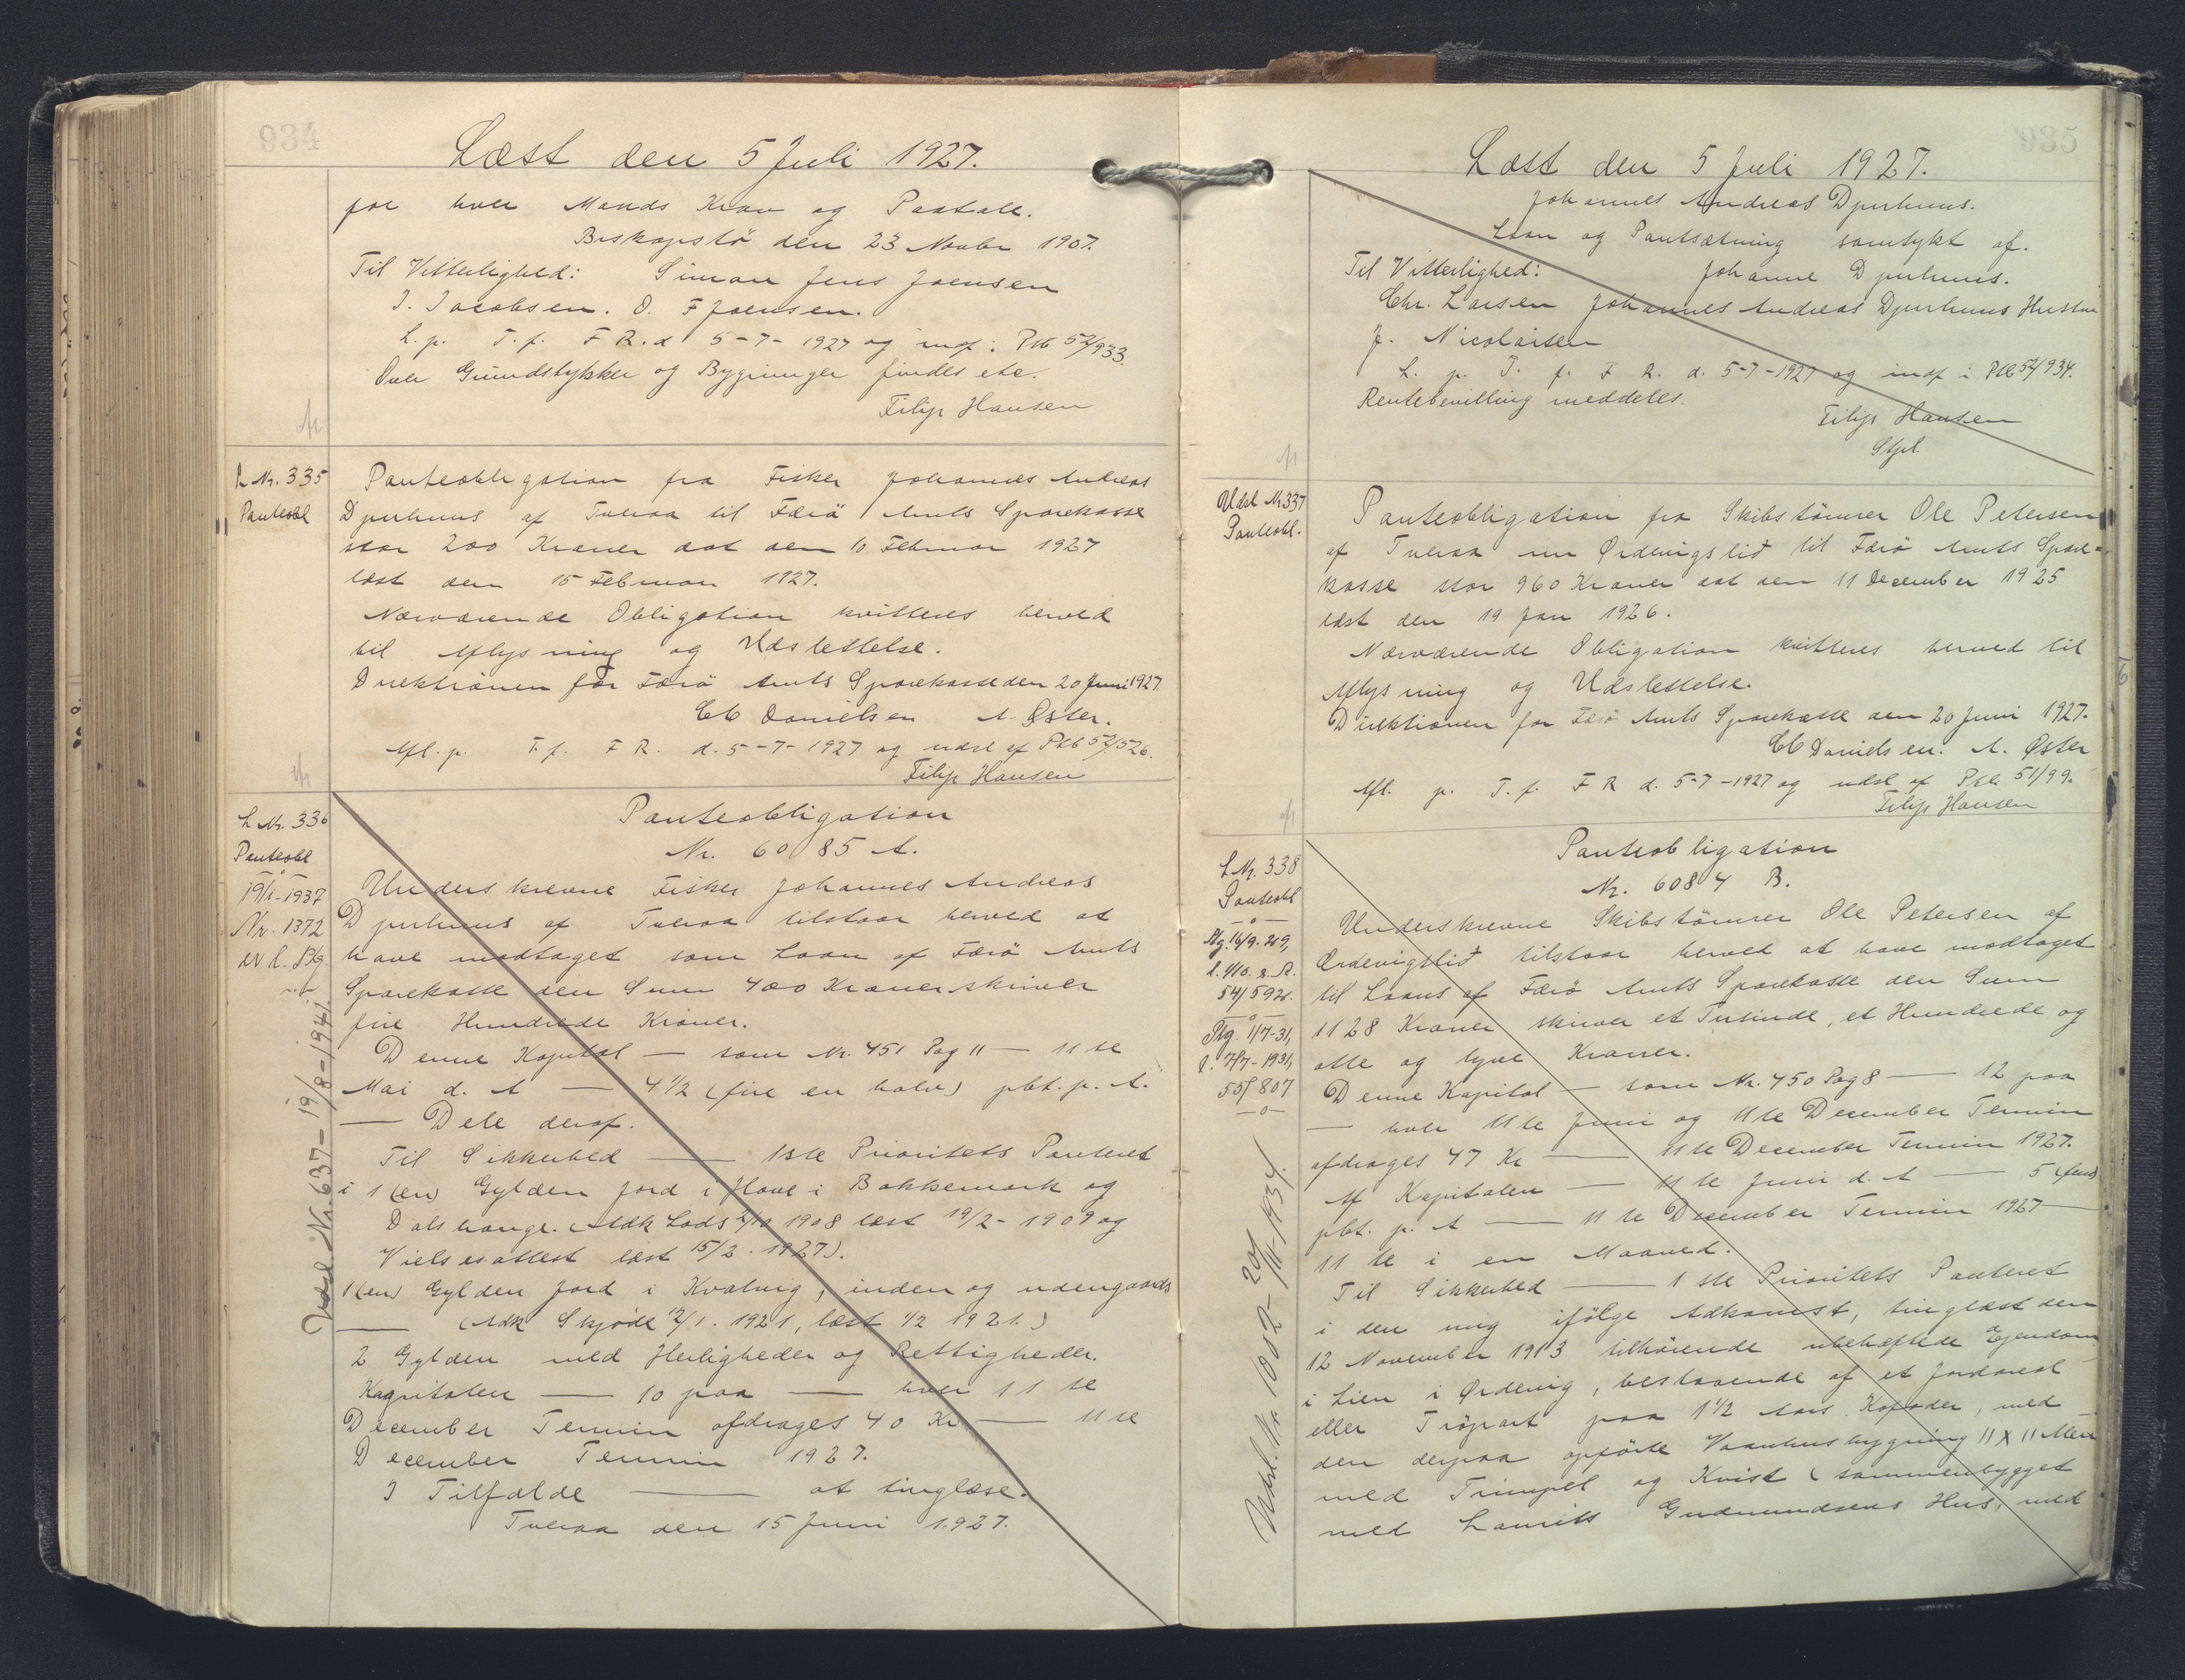 934
Læst den 5 Juli 1927.
for hver Mands Krav og Paatale.
Biskopstö den 23 Novbr 1907.
Til Vitterlighed: Simon Jens Joensen
J. Jacobsen. O. F Joensen.
L. p. T. f. F R. d 5-7-1927 og indf i Ptb 52/933.
Over Grundstykker og Bygninger findes etc.
Filip Hansen
L Nr. 335
Panteobl
Panteobligation fra Fisker Johannes Andreas
Djurhuus af Tveraa til Færö Amts Sparekasse
stor 200 Kroner dat den 10 Februar 1927
læst den 15 Februar 1927.
Nærværende Obligation kvitteres herved
til Aflysning og Udslettelse.
Direktionen for Færö Amts Sparekasse den 20 Juni 1927.
CC Danielsen A. Øster.
Afl. p. T. f. F R. d. 5-7-1927 og udsl af Ptb 52/526.
Filip Hansen
L Nr. 336
Panteobl
19/1-1937
Nr. 1372
Udsl. Nr 637-19/8-1941.
Panteobligation
Nr. 6085 A.
Underskrevne Fisker Johannes Andreas
Djurhuus af Tveraa tilstaar herved at
have modtaget som Laan af Færö Amts
Sparekasse den Sum 400 Kroner skriver
fire Hundrede Kroner.
Denne Kapital — som Nr. 451 Pag 11 — 11 te
Mai d. A — 4 1/2 (fire en halv) pct. p. A.
— Dele deraf.
Til Sikkerhed — 1ste Prioritets Panteret
i 1 (en) Gylden Jord i Hove i Bakkemark og
Dalshauge. (Adk Lods 2/10 1908 læst 19/2-1909 og
Vielsesattest læst 15/2. 1927).
1 (en) Gylden Jord i Kvalvig, inden og udengaards
— (Adk Skjöde 12/1. 1921, læst 1/2 1921.)
2 Gylden med Herligheder og Rettigheder.
Kapitalen — 10 paa — hver 11 te
December Termin afdrages 40 Kr — 11 te
December Termin 1927.
I Tilfælde — at tinglæse.
Tveraa den 15 Juni 1927.
935
Læst den 5 Juli 1927.
Johannes Andreas Djurhuus.
Laan og Pantsætning samtykt af.
Til Vitterlighed: Johanne Djurhuus.
Chr. Larsen Johannes Andreas Djurhuus Hustru
J. Nicolaisen
L. p. T. f. F R. d. 5-7-1927 og indf i Ptb 52/934.
Rentebevilling meddeles.
Filip Hansen
Stpl.
Udsl Nr 337
Panteobl.
Panteobligation fra Skibstömrer Ole Petersen
af Tveraa nu Ørdevigslid til Færö Amts Spare-
kasse stor 960 Kroner dat den 11 December 1925
læst den 19 Jan 1926.
Nærværende Obligation kvitteres herved til
Aflysning og Udslettelse.
Direktionen for Færö Amts Sparekasse den 20 Juni 1927.
CC Danielsen. A. Øster
Afl. p. T. f. F R d. 5-7-1927 og udsl af Ptb. 51/99.
Filip Hansen
L Nr. 338
Panteobl
—o—
Ptg. 14/9-29,
l. 1/10. s. A.
54/592.
—o—
Ptg. 1/7-31,
l. 7/7-1931,
55/807
—o—
Udsl. Nr. 1002-20/11-1934.
Panteobligation
Nr. 6084 B.
Underskrevne Skibstömrer Ole Petersen af
Ørdevigslid tilstaar herved at have modtaget
til Laans af Færö Amts Sparekasse den Sum
1128 Kroner skriver et Tusinde, et Hundrede og
otte og tyve Kroner.
Denne Kapital — som Nr. 450 Pag 8 — 12 paa
— hver 11 te Juni og 11 te December Termin
afdrages 47 Kr — 11 te December Termin 1927.
Af Kapitalen — 11 te Juni d. A — 5 (fem)
pct. p. A — 11 te December Termin 1927 —
11 te i en Maaned.
Til Sikkerhed — 1 ste Prioritets Panteret
i den mig ifölge Adkomst, tinglæst den
12 November 1913 tilhörende ubehæftede Ejendom
i Lien i Ørdevig, bestaaende af et Jordareal
eller Tröpart paa 1 1/2 Aars Kofoder, med
den derpaa opförte Vaanhusbygning 11 X 11 Alen
med Trimpel og Kvist (sammenbygget
med Laurits Gudmundsens Hus, med